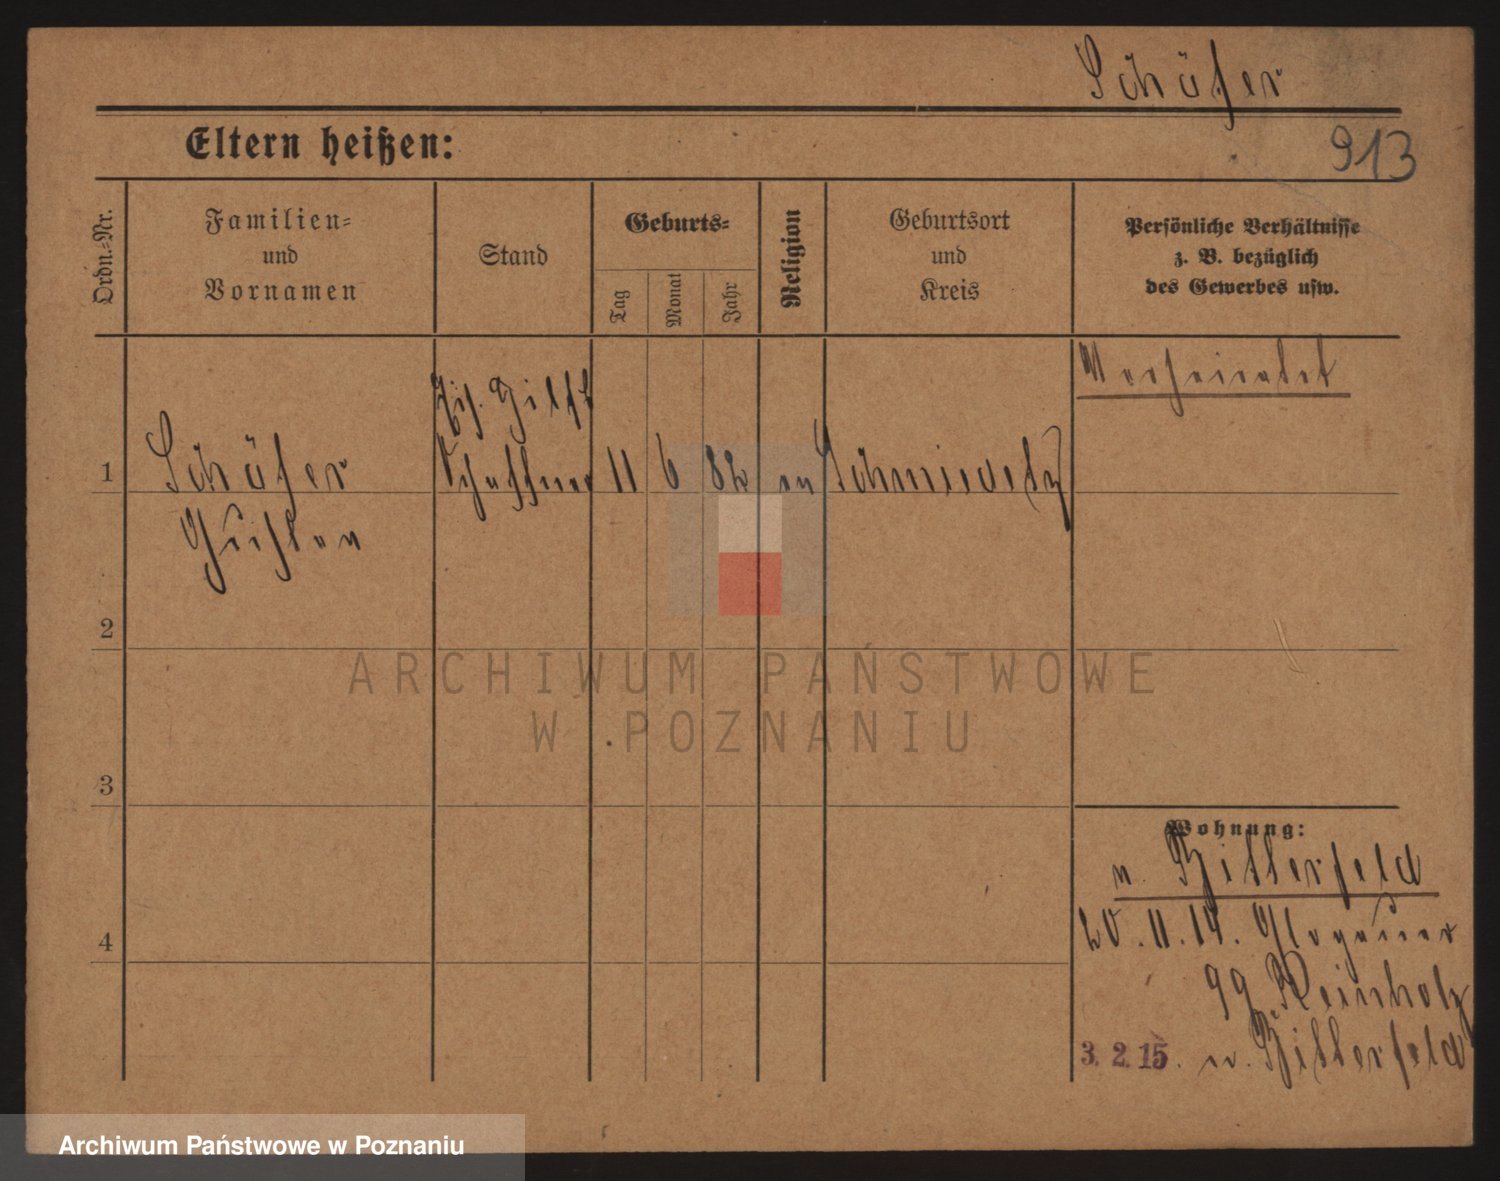 Schäfer
Eltern heißen:
913
Ordn.-Nr.
Familien-
und
Vornamen
Stand
Geburts-
Tag
Monat
Jahr
Religion
Geburtsort
und
Kreis
Persönliche Verhältnisse
z. B. bezüglich
des Gewerbes usw.
Verheiratet
1 Schäfer Schaffner 11 6 82 ev
Gustav
2
ARCHIWUM PAŃSTWOWE
W POZNANIU
3
Wohnung:
n. Bitterfeld
4
20.11.14. Glogauer
99 Reinholz
3. 2. 15. n. Bitterfeld
Archiwum Państwowe w Poznaniu